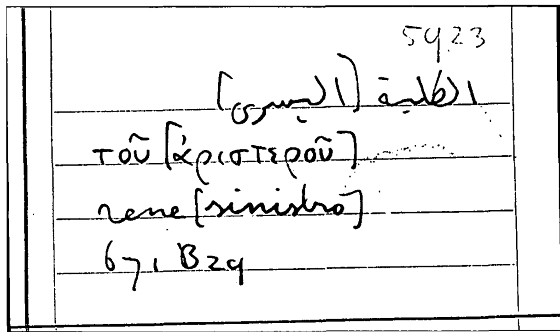 5923
الكلية [اليسرى]
τοῦ [ἀριστεροῦ]
rene [sinistro]
671 B29